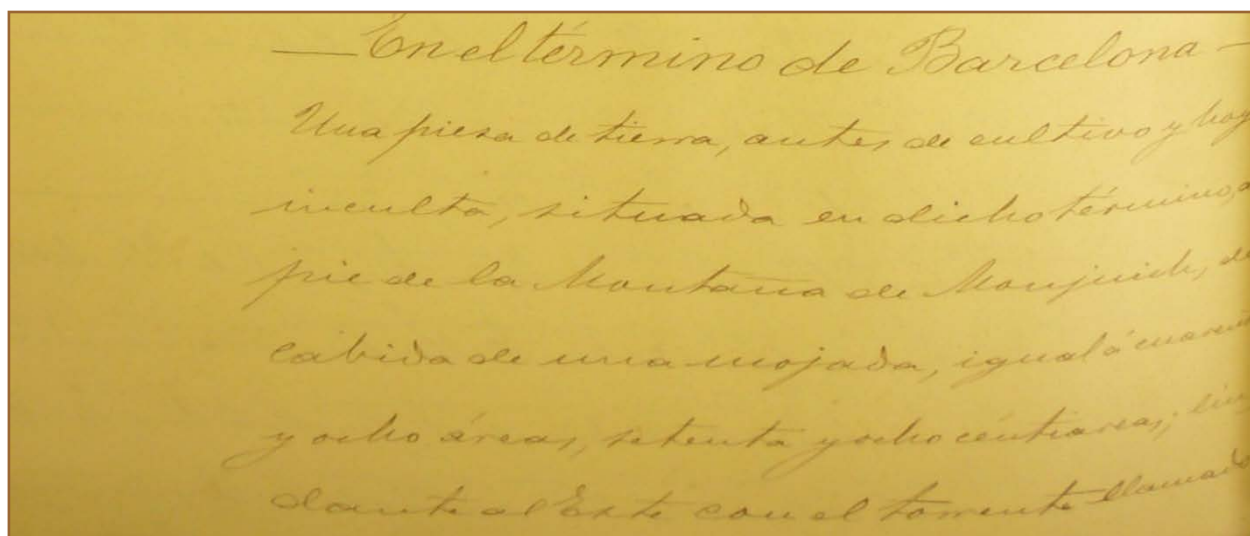 — En el término de Barcelona —
Una pieza de tierra, antes de cultivo y hoy
inculta, situada en dicho término, a
pie de la Montaña de Monjuich, de
cabida de una mojada, igual á cuaren
y ocho áreas, setenta y ocho céntiareas; lin
dante al Este con el torrente llamado